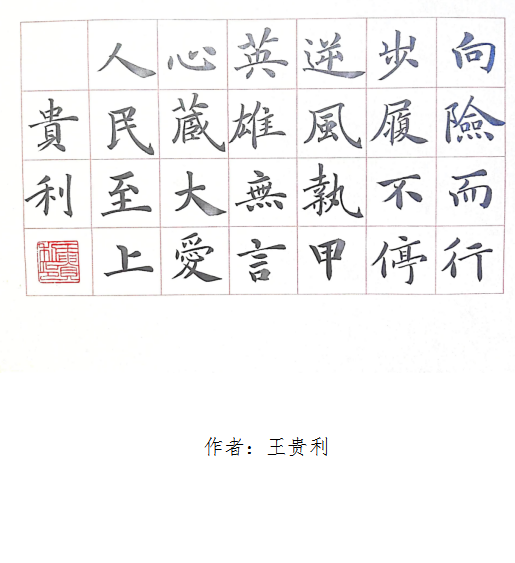 向險而行
步履不停
逆風執甲
英雄無言
心藏大愛
人民至上
貴利
作者：王贵利